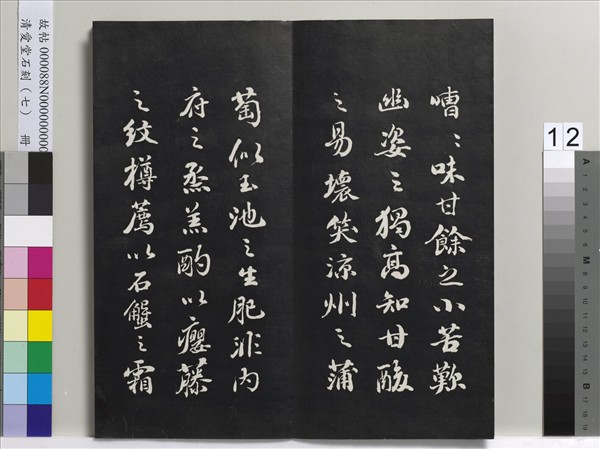 嘈〻味甘餘之小苦歎
幽姿之獨高知甘酸
之易壞笑涼州之蒲
萄似玉池之生肥非內
府之烝羔酌以癭藤
之紋樽薦以石蟹之霜
故帖 000088N000000000
清愛堂石刻(七) 冊
12
A 1 2 3 4 5 6 M 8 9 10 11 12 13 14 15 B 17 18 19